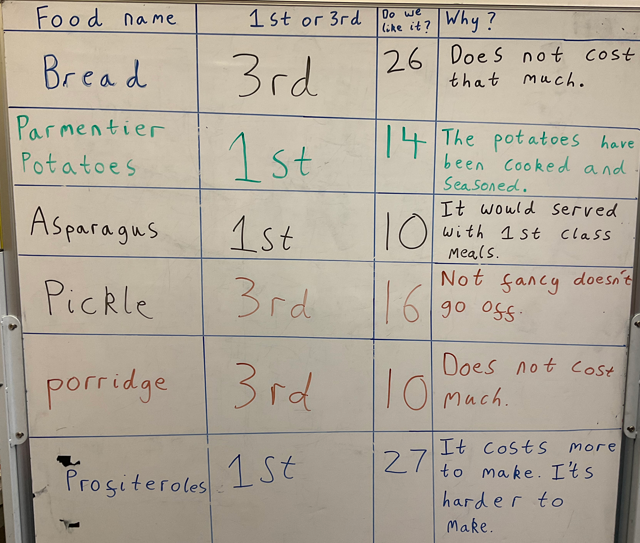 Food name 1st or 3rd Do we like it? Why?
Bread 3rd 26 Does not cost
that much.
Parmentier
Potatoes 1st 14 The potatoes have
been cooked and
seasoned.
Asparagus 1st 10 It would served
with 1st class
meals.
Pickle 3rd 16 Not fancy doesn't
go off.
porridge 3rd 10 Does not cost
much.
Profiteroles 1st 27 It costs more
to make. It's
harder to
make.